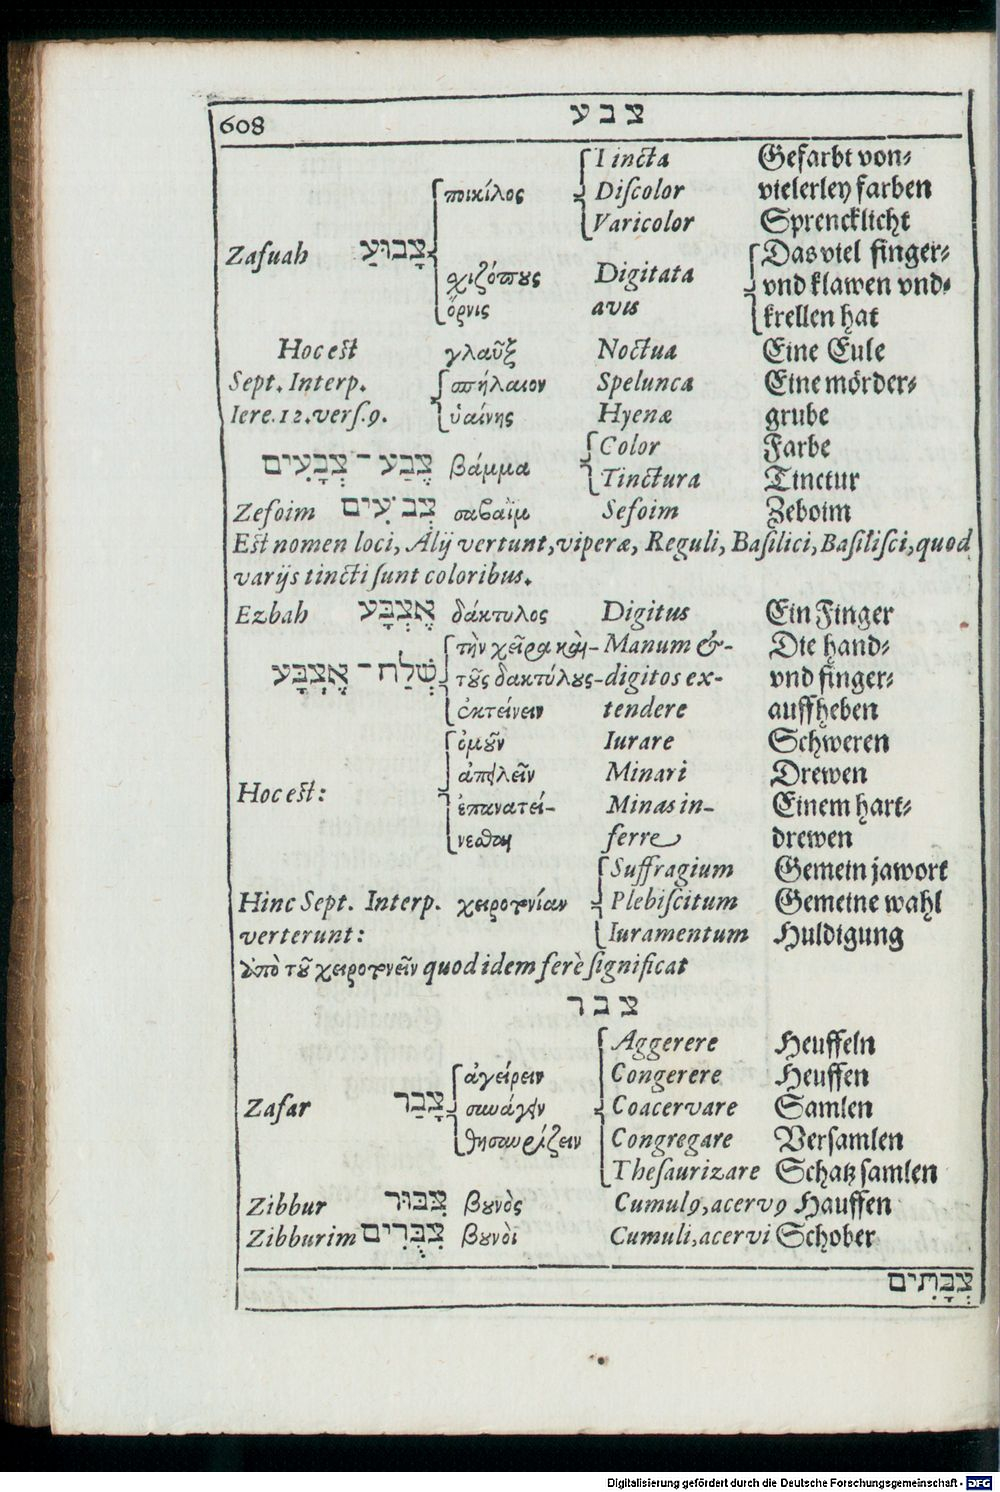 608 צבע
Tincta Gefarbt von⸗
ποικίλος Diſcolor vielerley farben
Varicolor Sprencklicht
Zafuah צָבוּעַ Das viel finger⸗
χιζόπους Digitata vnd klawen vnd⸗
ὄρνις avis krellen hat
Hoc est γλαῦξ Noctua Eine Eule
Sept. Interp. σπήλαιον Spelunca Eine mörder⸗
Iere. 12. verſ. 9. ὑαίνης Hyenæ grube
Color Farbe
צֶבַע־צְבָעִים βάμμα Tinctura Tinctur
Zefoim צְבֹעִים σαβαῒμ Sefoim Zeboim
Est nomen loci, Alij vertunt, viperæ, Reguli, Baſilici, Baſiliſci, quod
varijs tincti ſunt coloribus.
Ezbah אֶצְבָּע δάκτυλος Digitus Ein Finger
τὴν χεῖρα καὶ- Manum &- Die hand⸗
שְׁלַח־אֶצְבָּע τοὺς δακτύλους- digitos ex- vnd finger⸗
ἐκτείνειν tendere auffheben
ὀμοῦν Iurare Schweren
ἀπειλεῖν Minari Drewen
Hoc est: ἐπανατεί- Minas in- Einem hart⸗
νεσθαι ferre drewen
Suffragium Gemein jawort
Hinc Sept. Interp. χειροτονίαν Plebiſcitum Gemeine wahl
verterunt: Iuramentum Huldigung
Ὑπὸ τοῦ χειροτονεῖν quod idem ferè ſignificat
צבר
Aggerere Heuffeln
ἀγείρειν Congerere Heuffen
Zafar צָבַר συνάγειν Coacervare Samlen
θησαυρίζειν Congregare Verſamlen
Theſaurizare Schatz ſamlen
Zibbur צִבּוּר βουνὸς Cumulꝰ, acervꝰ Hauffen
Zibburim צִבֻּרִים βουνοὶ Cumuli, acervi Schober
צְבָתִים
Digitalisierung gefördert durch die Deutsche Forschungsgemeinschaft - DFG